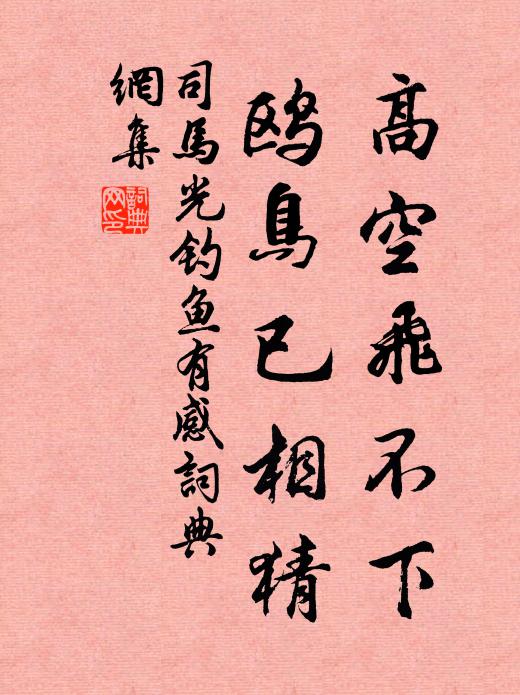 高空飛不下
鸥鳥已相猜
司馬光钓鱼有感詞典
網集
詞典
网印